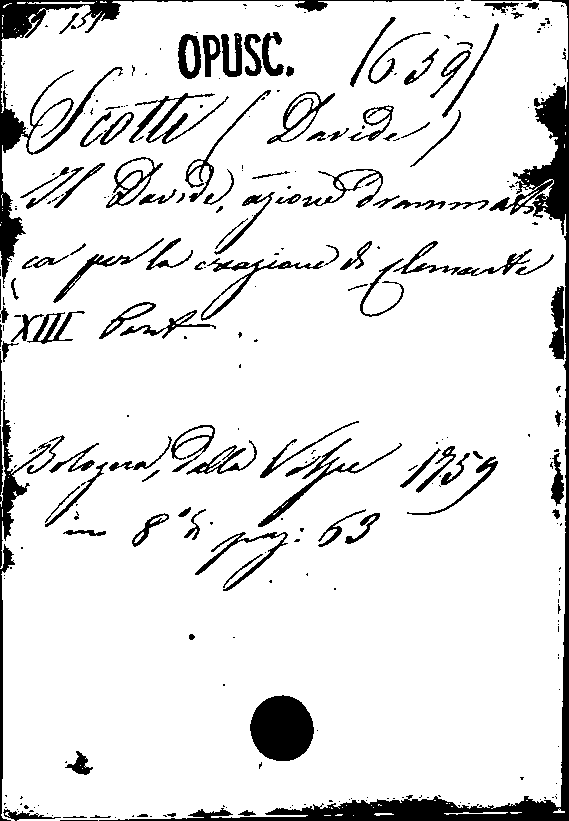 9. 159
OPUSC. (659)
Scotti (Davide)
Il Davide, azione drammati
ca per la creazione di Clemente
XIII Pont.
Bologna, Dalla Volpe 1759
in 8° di pag: 63